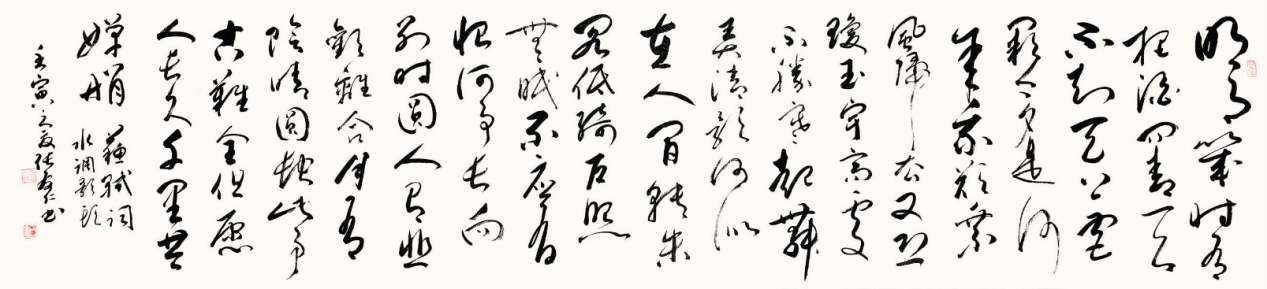 明月幾时有
把酒问青天
不知天上宫
阙今夕是何
年我欲乘
风归去又恐
瓊玉宇高處
不勝寒起舞
弄清影何似
在人间轉朱
阁低绮户照
無眠不應有
恨何事长向
别时圆人有悲
歡離合月有
陰晴圆缺此事
古難全但愿
人长久千里共
嬋娟 蘇軾词
水调歌头
壬寅 张 书